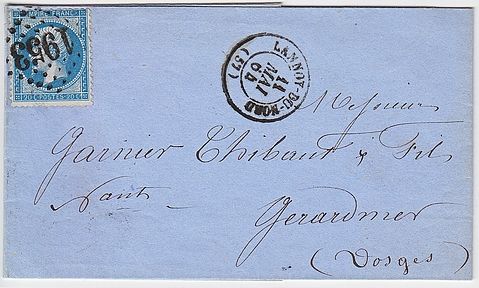 EMPIRE FRANC
1953
20 C POSTES 20 C
LANNOY-DU-NORD
11
MAI
64
(57)
Messieurs
Garnier Thibaut & Fils
Gerardmer
(Vosges)